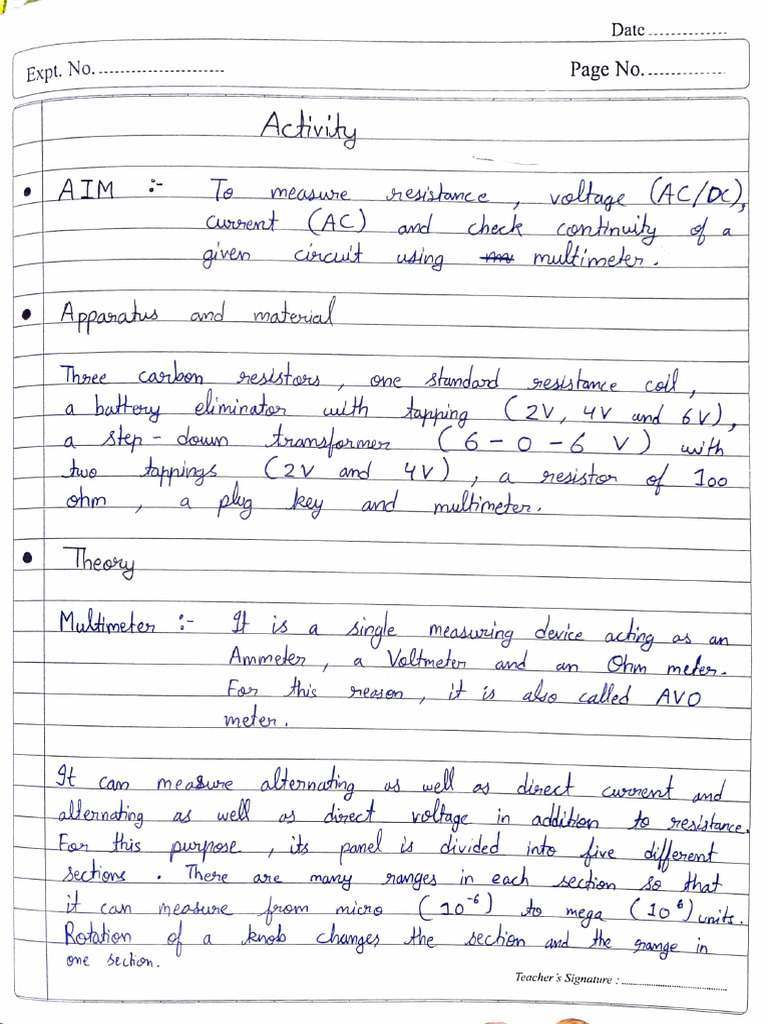 Date ..............
Expt. No. ..............................
Page No. ..............
Activity
• AIM :- To measure resistance, voltage (AC/DC),
current (AC) and check continuity of a
given circuit using multimeter.
• Apparatus and material
Three carbon resistors, one standard resistance coil,
a battery eliminator with tapping (2V, 4V and 6V),
a step-down transformer (6-0-6 V) with
two tappings (2V and 4V), a resistor of 100
ohm, a plug key and multimeter.
• Theory
Multimeter :- It is a single measuring device acting as an
Ammeter, a Voltmeter and an Ohm meter.
For this reason, it is also called AVO
meter.
It can measure alternating as well as direct current and
alternating as well as direct voltage in addition to resistance.
For this purpose, its panel is divided into five different
sections. There are many ranges in each section so that
it can measure from micro (10⁻⁶) to mega (10⁶) units.
Rotation of a knob changes the section and the range in
one section.
Teacher's Signature : ..............................